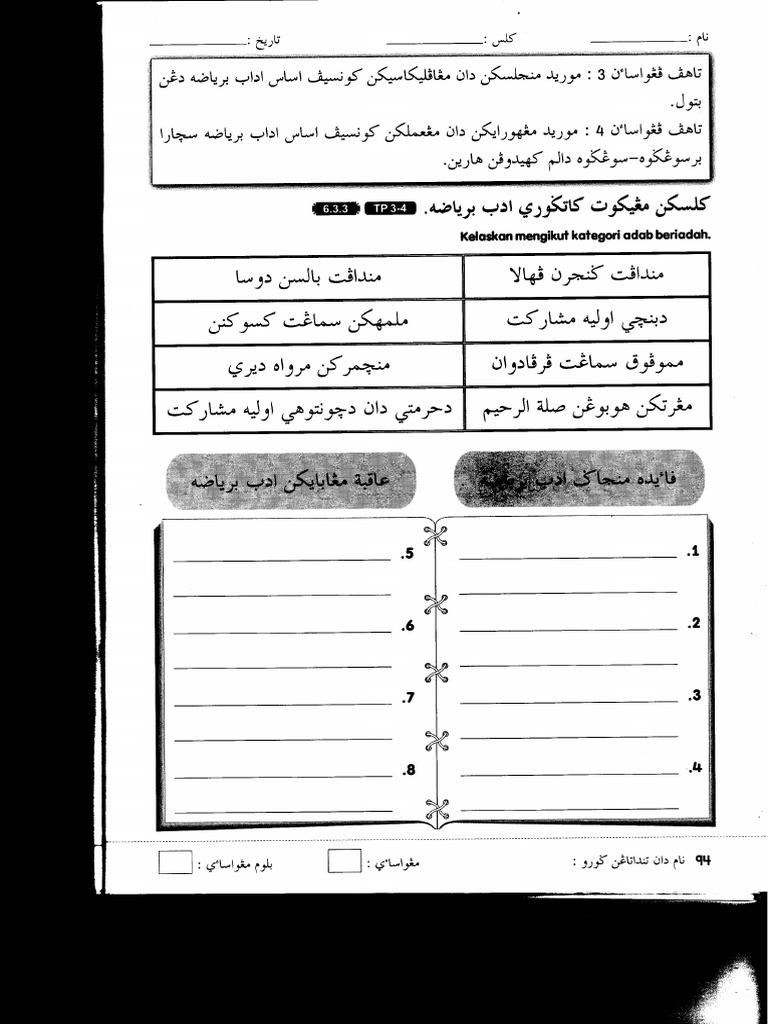 نام : ____________ کلس : ____________ تاريخ : ____________
تاهڤ ڤڠواساءن 3 : موريد منجلسکن دان مڠاڤليکاسيکن کونسيڤ اساس اداب برياضه دڠن
بتول.
تاهڤ ڤڠواساءن 4 : موريد مڠهورايکن دان مڠعملکن کونسيڤ اساس اداب برياضه سچارا
برسوڠݢوه–سوڠݢوه دالم کهيدوڤن هارين.
کلسکن مڠيکوت کاتݢوري ادب برياضه. TP 3-4 6.3.3
Kelaskan mengikut kategori adab beriadah.
منداڤت ݢنجرن ڤهالا منداڤت بالسن دوسا
دبنچي اوليه مشارکت ملمهکن سماڠت کسوکنن
مموڤوق سماڠت ڤرڤادوان منچمرکن مرواه ديري
مڠرتکن هوبوڠن صلة الرحيم دحرمتي دان دچونتوهي اوليه مشارکت
فائيده منجاݢ ادب برياضه عاقبة مڠابايکن ادب برياضه
1. ____________ 5. ____________
2. ____________ 6. ____________
3. ____________ 7. ____________
4. ____________ 8. ____________
94 نام دان تنداتاڠن ݢورو : مڠواساءي : بلوم مڠواساءي :